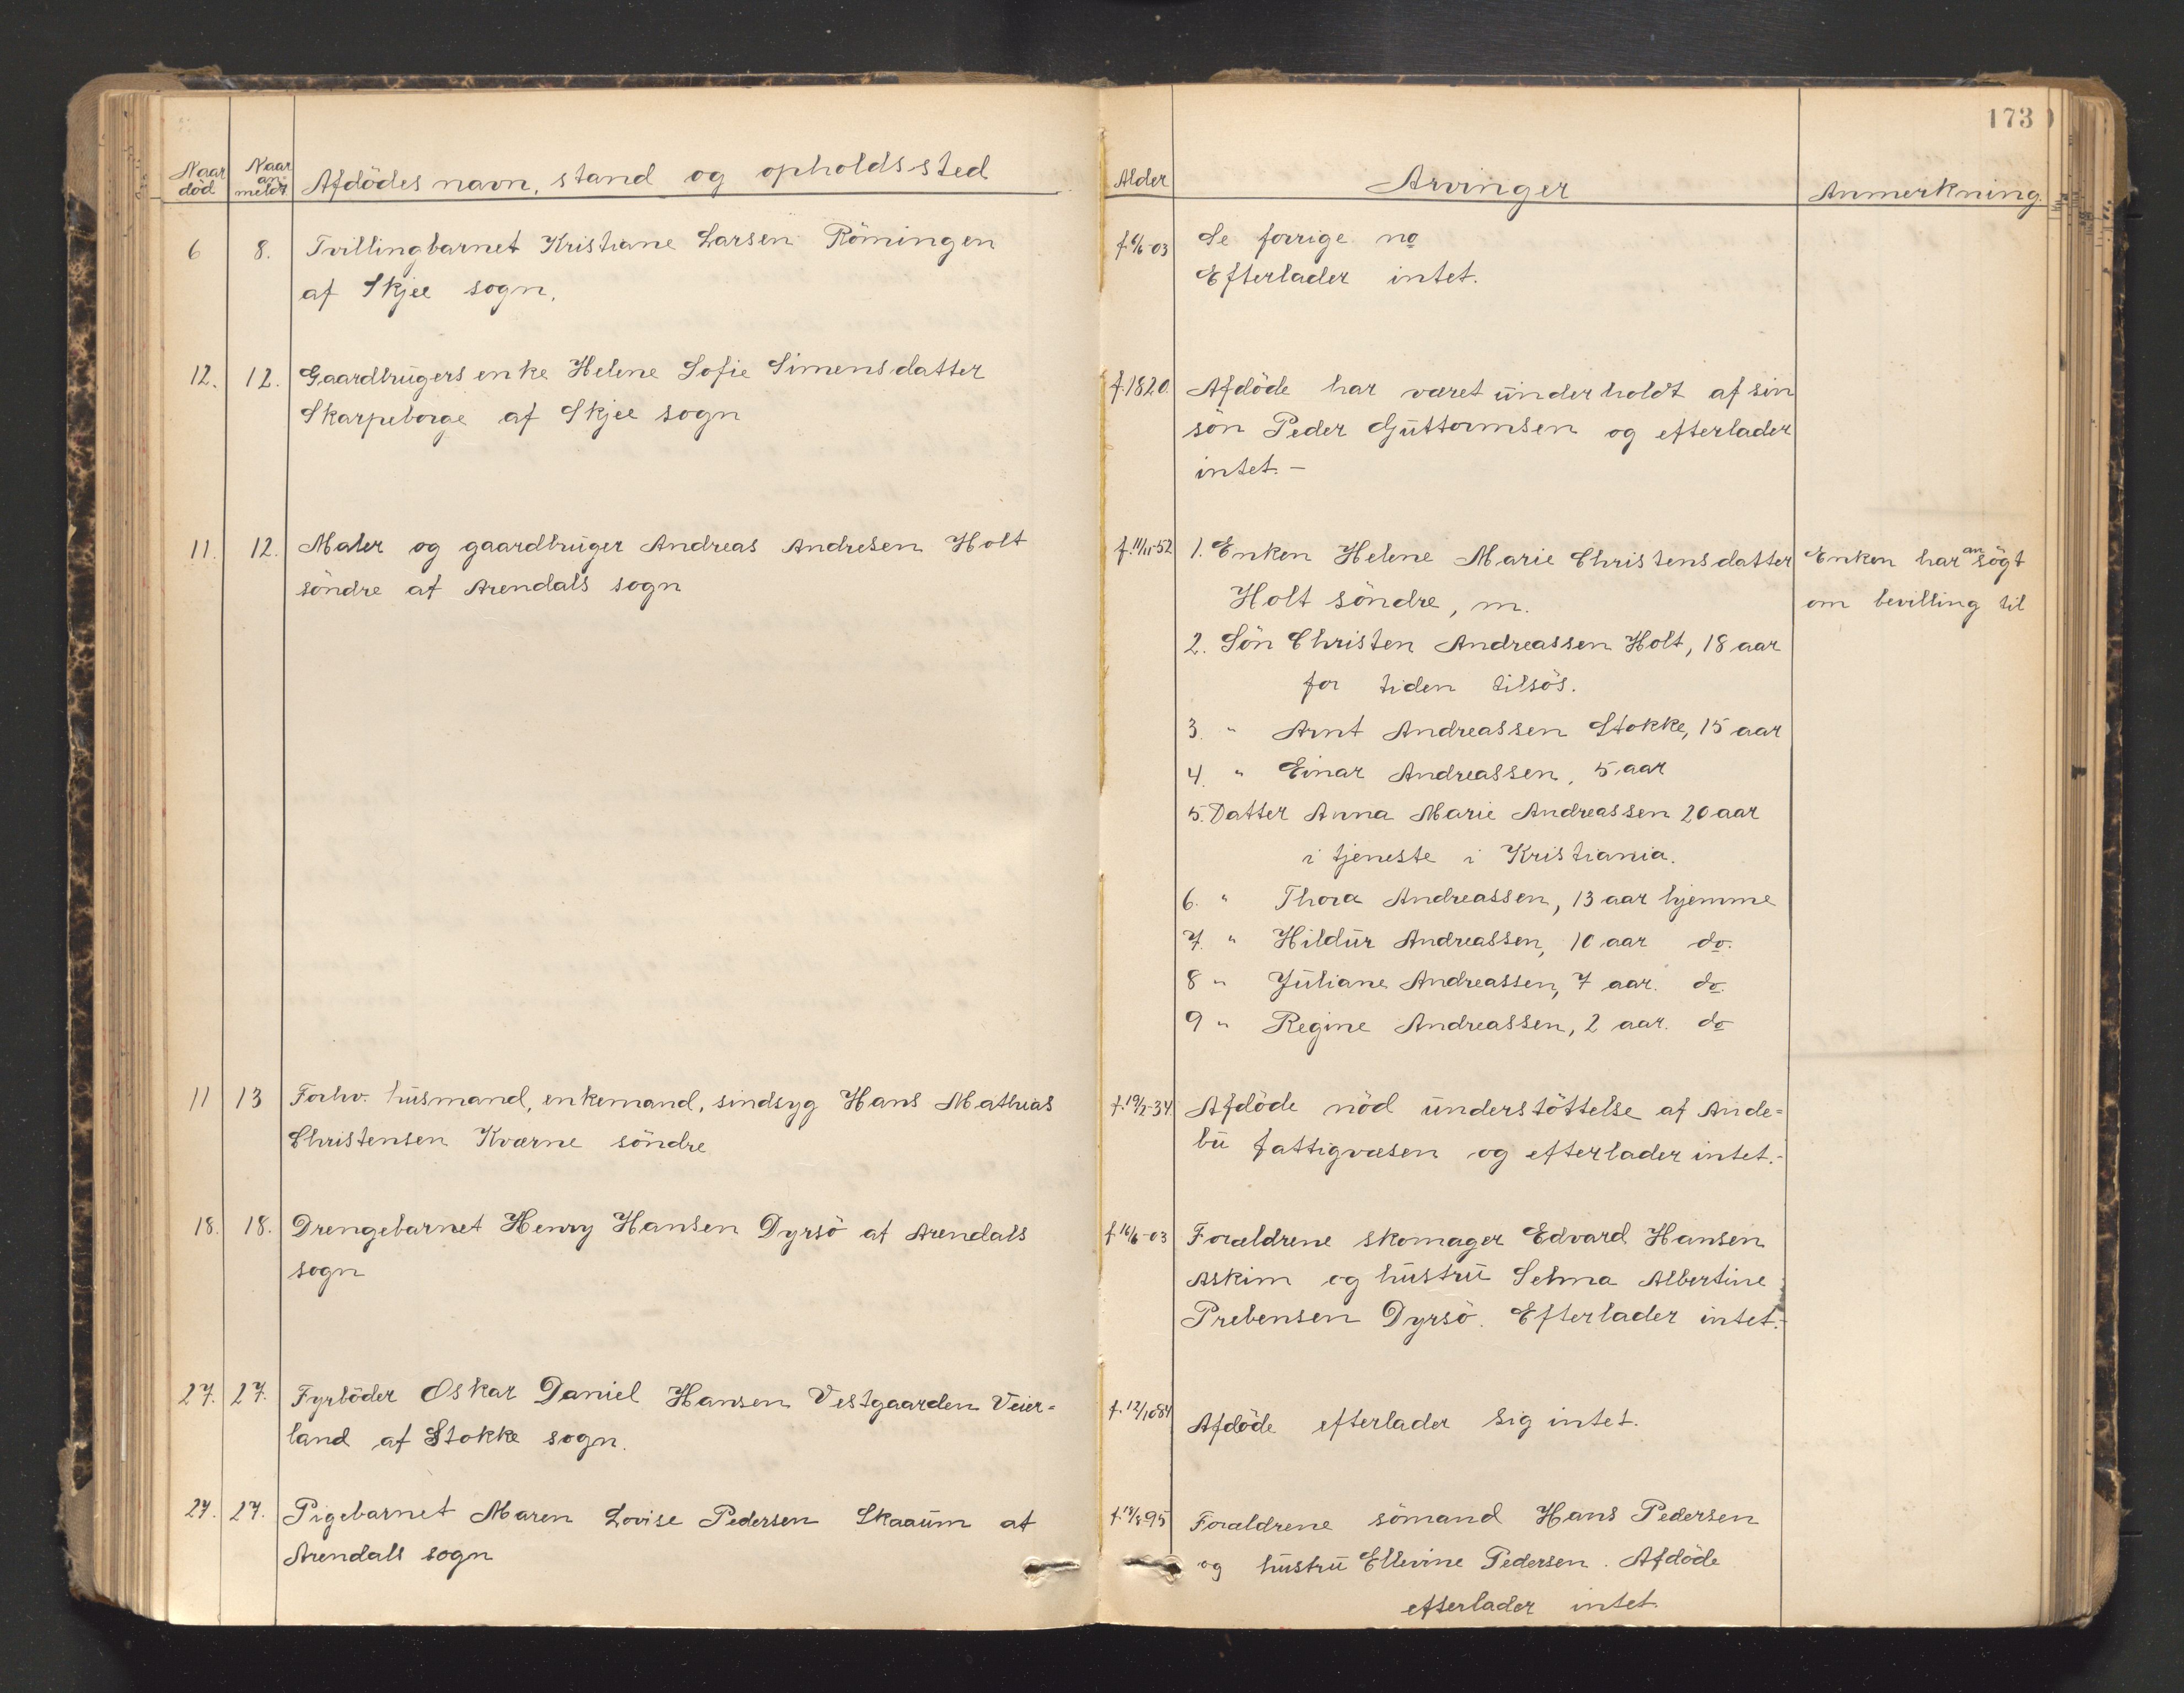 173
Naar død
Naar an- meldt
Afdödes navn, stand og opholdssted
Alder
Arvinger
Anmerkning.
6
8.
Tvillingbarnet Kristiane Larsen Römingen
af Skjee sogn.
f. 6/6-03
Se forrige no
Efterlader intet.
12.
12.
Gaardbrugers enke Helene Sofie Simensdatter
Skarpeborge af Skjee sogn
f. 1820.
Afdöde har været underholdt af sin
sön Peder Guttormsen og efterlader
intet. -
11.
12.
Maler og gaardbruger Andreas Andresen Holt
söndre af Arendals sogn
f. 11/11-52
1. Enken Helene Marie Christensdatter
Holt söndre, m.
Enken har ansögt
om bevilling til
2. Sön Christen Andreassen Holt, 18 aar
for tiden tilsös.
3. " Arnt Andreassen Stokke, 15 aar
4. " Einar Andreassen, 5 aar
5. Datter Anna Marie Andreassen 20 aar
i tjeneste i Kristiania.
6. " Thora Andreassen, 13 aar hjemme
7. " Hildur Andreassen, 10 aar do.
8 " Juliane Andreassen, 7 aar. do.
9 " Regine Andreassen, 2 aar. do
11
13
Forhv. husmand, enkemand, sindsyg Hans Mathias
Christensen Kværne söndre
f. 19/2-34
Afdöde nöd understöttelse af Ande=
bu fattigvæsen og efterlader intet.-
18.
18.
Drengebarnet Henry Hansen Dyrsö af Arendals
sogn
f. 16/6-03
Forældrene skomager Edvard Hansen
Askim og hustru Selma Albertine
Prebensen Dyrsö. Efterlader intet.-
27.
27.
Fyrböder Oskar Daniel Hansen Vestgaarden Veier=
land af Stokke sogn.
f. 12/10 84
Afdöde efterlader sig intet.
27.
27.
Pigebarnet Maren Lovise Pedersen Skaaum af
Arendals sogn
95
Forældrene sömand Hans Pedersen
og hustru Ellevine Pedersen. Afdöde
efterlader intet.